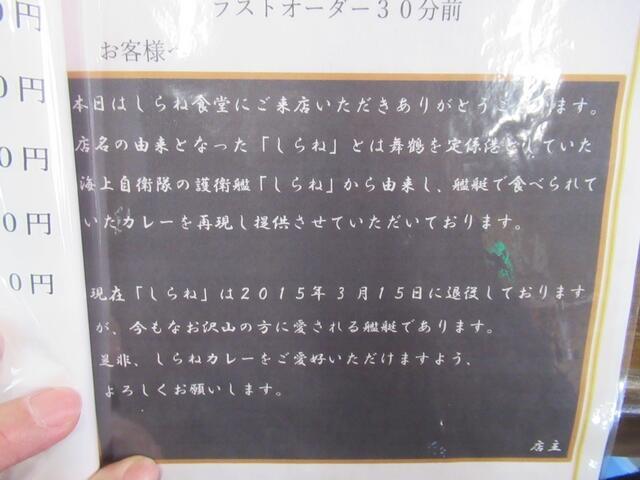 ラストオーダー30分前
お客様へ
本日はしらね食堂にご来店いただきありがとうございます。
店名の由来となった「しらね」とは舞鶴を定係港としていた
海上自衛隊の護衛艦「しらね」から由来し、艦艇で食べられて
いたカレーを再現し提供させていただいております。
現在「しらね」は2015年3月15日に退役しております
が、今もなお沢山の方に愛される艦艇であります。
是非、しらねカレーをご愛好いただけますよう、
よろしくお願いします。
店主
円
0円
0円
0円
0円